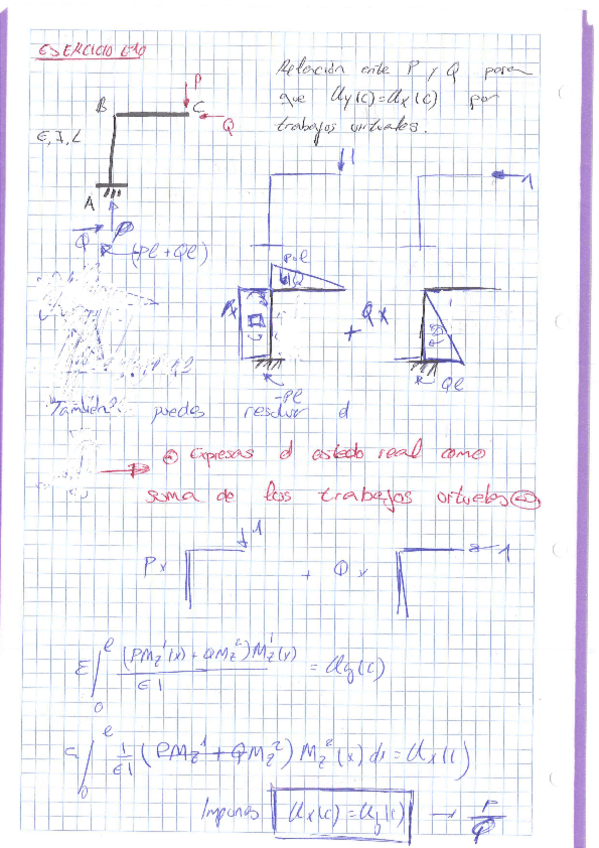 EJERCICIO
Relación entre P y Q para
que Uy(c)=Ux(c) por
trabajos virtuales.
P
B
C
Q
E, I, L
A
1
1
Q
P
(-Pl+Ql)
P·l
Px
+
Qx
-Pl
Ql
También puedes resolver el
Expresas el estado real como
suma de los trabajos virtuales
Px
1
+
Qx
1
Σ∫₀ˡ (PMz¹(x)+QMz²)Mz¹(x) / EI = Uy(c)
∫₀ˡ 1/EI (PMz¹+QMz²) Mz²(x) ds = Ux(c)
Impones Ux(c)=Uy(c) → P/Q